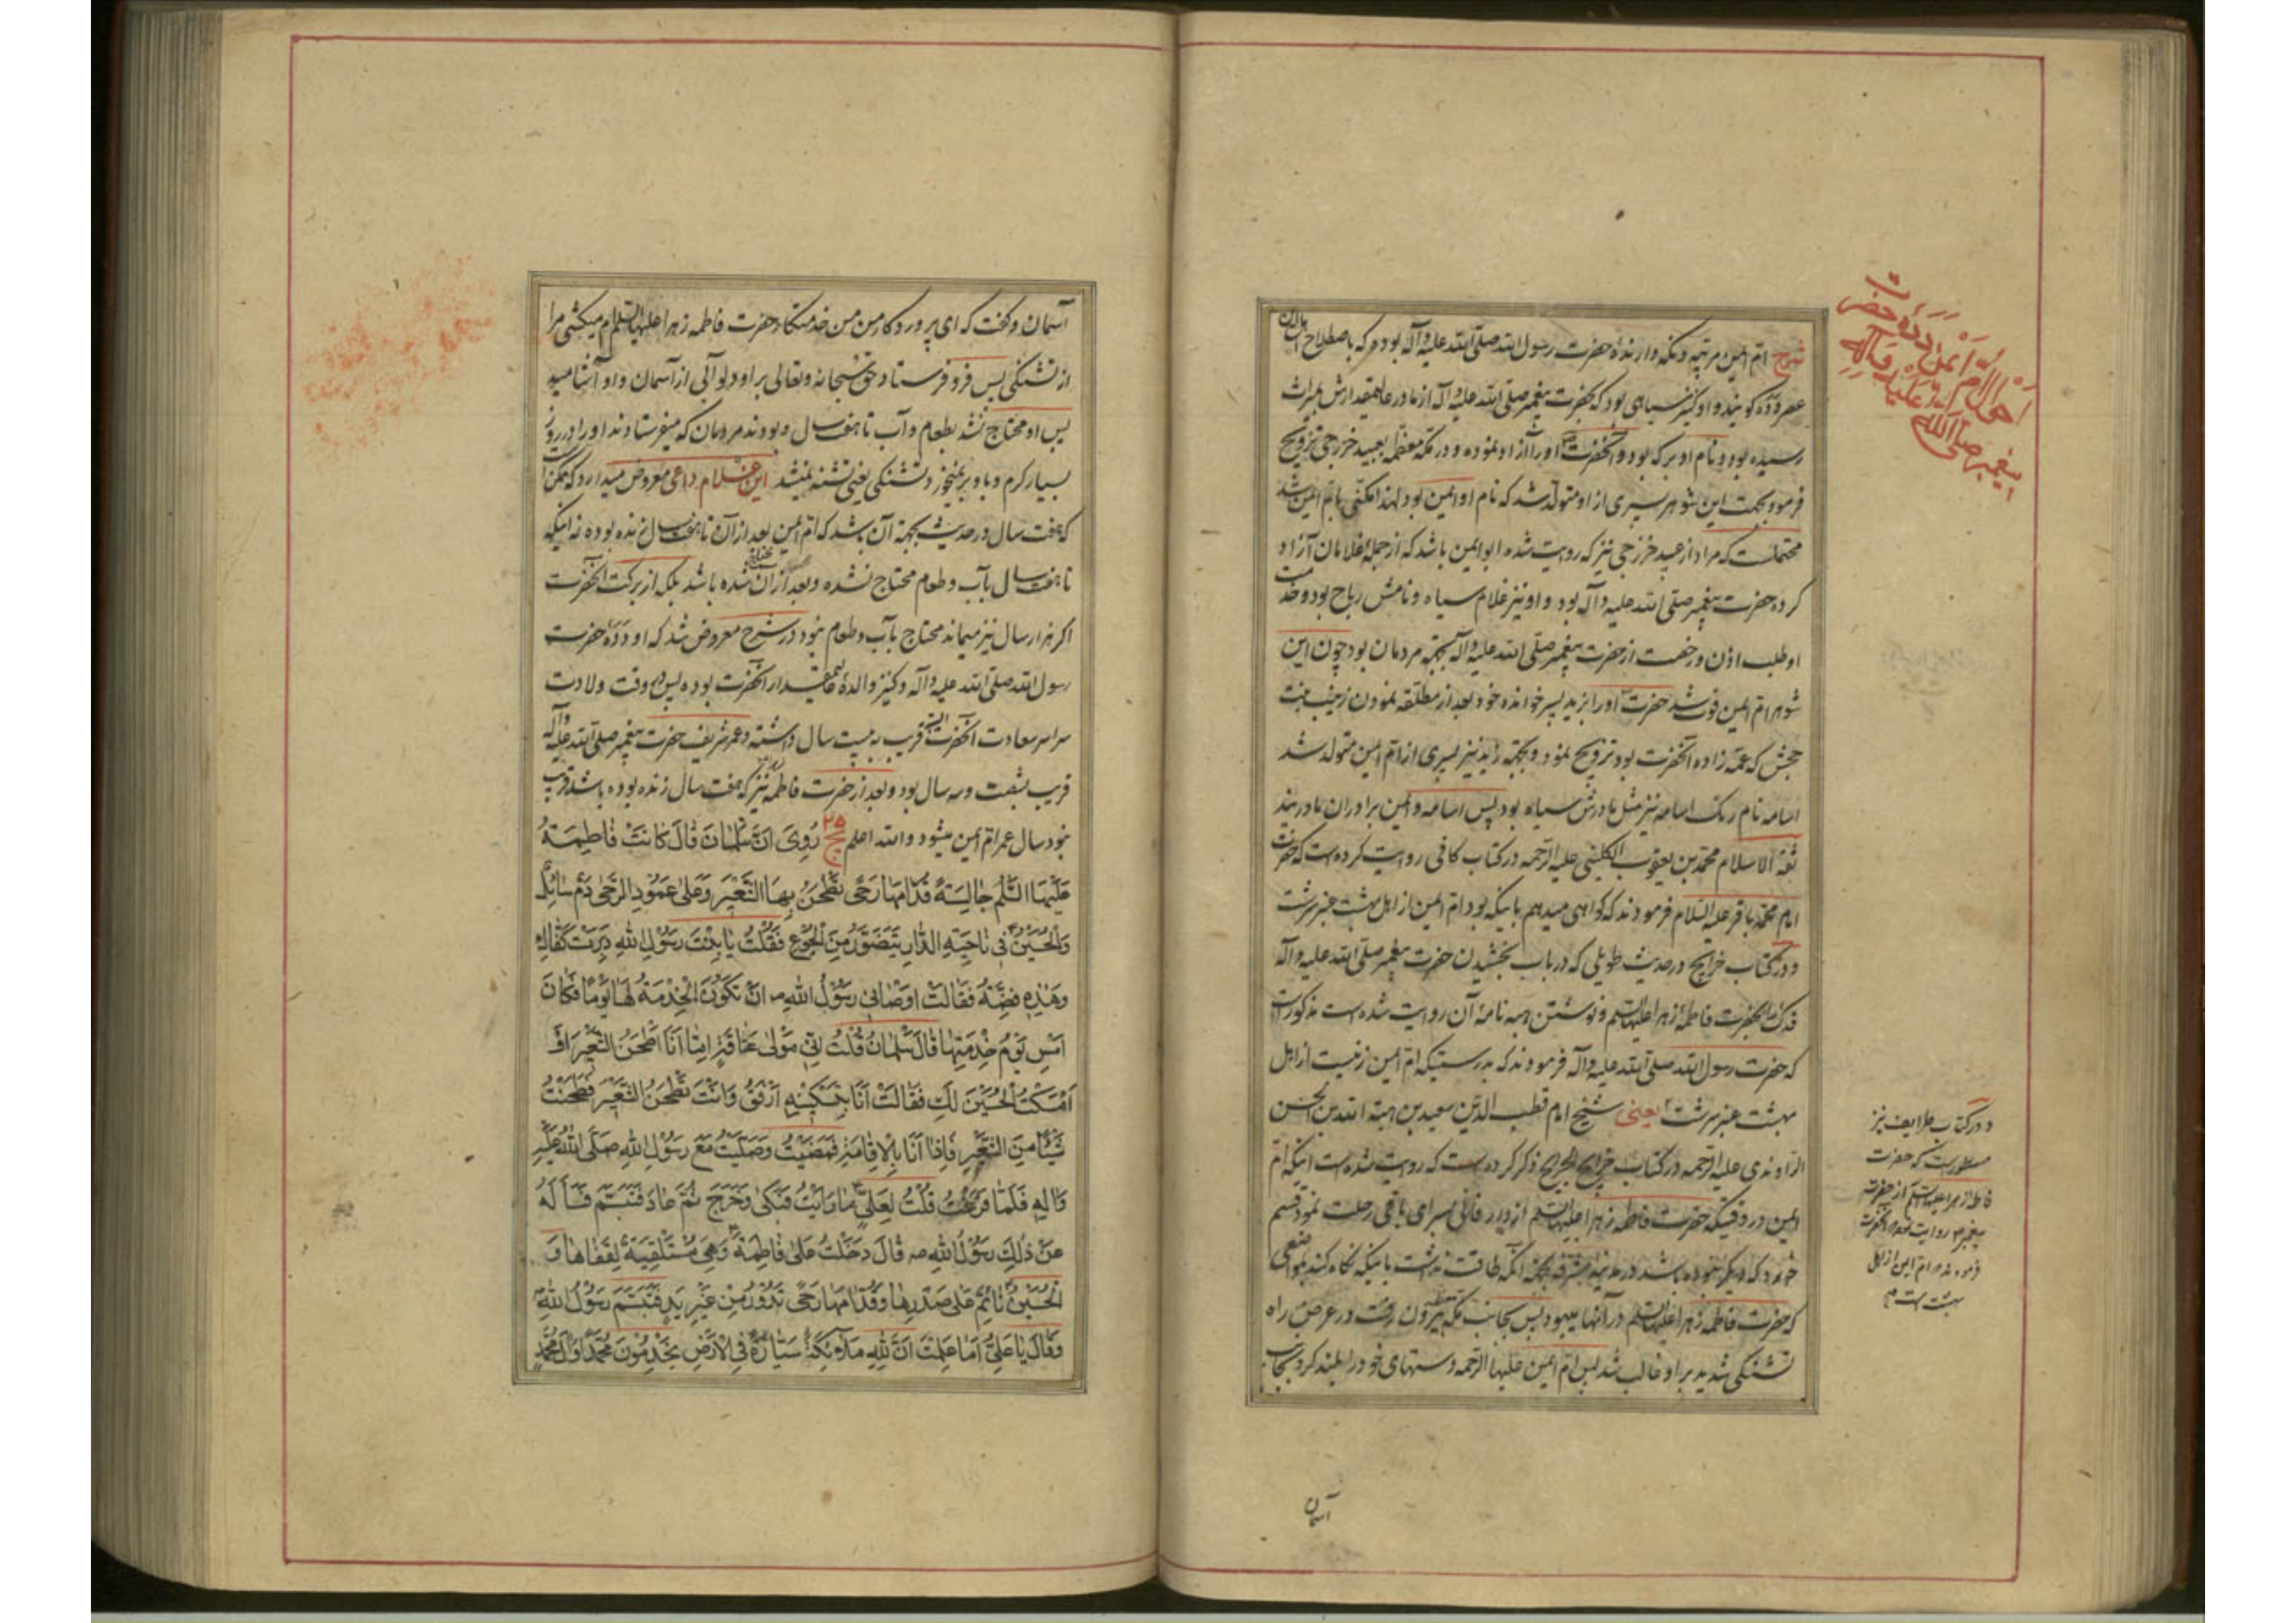 شرح ام ایمن مرتبه و نکه دارندهٔ حضرت رسول الله صلی الله علیه وآله بوده که باصطلاح اهل این
عصر دده کویند و او کنیز سیاهی بود که بحضرت پیغمبر صلی الله علیه وآله از مادر عالیمقدارش بمیراث
رسیده بود و نام او برکه بود و آنحضرت او را آزاد نموده و در مکه معظمه بعبید خزرجی تزویج
فرمود و بجهت این شوهر پسری از او متولد شد که نام او ایمن بود لهذا مکنی بام ایمن شد
محتملست که مراد از عبید خزرجی نیز که روایت شده ابو ایمن باشد که از جملهٔ غلامان آزاد
کرده حضرت پیغمبر صلی الله علیه وآله بود و او نیز غلام سیاه و نامش رباح بود و خدمت
او طلب اذن و رخصت از حضرت پیغمبر صلی الله علیه وآله بجهة مردمان بود چون این
شوهر ام ایمن فوت شد حضرت او را بزید پسر خوانده خود بعد از مطلقه نمودن زینب بنت
جحش که عمه زاده آنحضرت بود تزویج نمود و بجهة زید نیز پسری از ام ایمن متولد شد
اسامه نام رنک اسامه نیز مثل مادرش سیاه بود پس اسامه و ایمن برادران مادریند
ثقة الاسلام محمد بن یعقوب الکلینی علیه الرحمه در کتاب کافی روایت کرده است که حضرت
امام محمد باقر علیه السلام فرمودند که کواهی میدهم باینکه بود ام ایمن از اهل بهشت عنبر سرشت
و در کتاب خرایج در حدیث طویلی که در باب بخشیدن حضرت پیغمبر صلی الله علیه وآله
فدک را بحضرت فاطمه زهرا علیها السلم و نوشتن هبه نامهٔ آن روایت شده است مذکور است
که حضرت رسول الله صلی الله علیه وآله فرمودند که بدرستیکه ام ایمن زنیست از اهل
بهشت عنبر سرشت یعنی شیخ امام قطب الدین سعید بن هبة الله بن الحسن
الراوندی علیه الرحمه در کتاب خرایج الجرایح ذکر کرده است که روایت شده است اینکه ام
ایمن در وقتیکه حضرت فاطمه زهرا علیها السلم از دیر فانی بسرای باقی رحلت نمود قسم
خورد که دیکر نبوده باشد در مدینه مشرفه بجهة انکه طاقت نداشت باینکه نکاه کند بمواضعی
که حضرت فاطمه زهرا علیها السلم در آنها میبود پس بجانب مکه بیرون رفت در عرض راه
تشنکی شدید بر او غالب شد پس ام ایمن علیها الرحمه دستهای خود را بلند کرد بجانب
آسمان
احوال ام ایمن دده حضرت
پیغمبر صلی الله علیه وآله
و در کتاب طرایف نیز
مسطور است که حضرت
فاطمه زهرا علیها السلم از حضرت
پیغمبر روایت نموده که آنحضرت
فرمودند ام ایمن از اهل
بهشت است
آسمان و کفت که ای پروردکار من من خدمتکار حضرت فاطمه زهرا علیها السلام ام میکشی مرا
از تشنکی پس فرو فرستاد حق سبحانه وتعالی بر او دلو آبی از آسمان و او آشامید
پس او محتاج نشد بطعام و آب تا هفت سال و بودند مردمان که میفرستادند او را در روز
بسیار کرم و باد بر نمیخورد تشنکی یعنی تشنه نمیشد این غلام داعی معروض میدارد که ممکن است
که هفت سال در حدیث بجهة آن باشد که ام ایمن بعد از آن تا هفت سال زنده بوده نه اینکه
تا هفت سال بآب و طعام محتاج نشده و بعد از آن محتاج شده باشد بلکه از برکت آنحضرت
اکر هزار سال نیز میماند محتاج بآب و طعام نبود در شرح معروض شد که او ددهٔ حضرت
رسول الله صلی الله علیه وآله و کنیز والدهٔ عالیمقدار آنحضرت بوده پس در وقت ولادت
سراسر سعادت آنحضرت البته قریب به بیست سال داشته و عمر شریف حضرت پیغمبر صلی الله علیه وآله
قریب بشصت و سه سال بود و بعد از حضرت فاطمه نیز که هفت سال زنده بوده باشد قریب
نود سال عمر ام ایمن میشود والله اعلم ۲۵ ج رُوِیَ اَنَّ سَلْمانَ قالَ کانَتْ فاطِمَةُ
عَلَیْهَا السَّلَمُ جالِسَةً قُدّامَها رَحًی تَطْحَنُ بِهَا الشَّعیرَ وَعَلی عَمُودِ الرَّحی دَمٌ سائِلٌ
وَالْحُسَیْنُ فی ناحِیَةِ الدّارِ یَتَضَوَّرُ مِنَ الْجُوعِ فَقُلْتُ یا بِنْتَ رَسُولِ اللهِ دَبِرَتْ کَفّاكِ
وَهٰذِهِ فِضَّةُ فَقالَتْ اَوْصانی رَسُولُ اللهِ ص اَنْ تَکُونَ الْخِدْمَةُ لَها یَوْمًا فَکانَ
اَمْسِ یَوْمُ خِدْمَتِها قالَ سَلْمانُ قُلْتُ اِنّی مَوْلی عَتاقَةٍ اِمّا اَنَا اَطْحَنُ الشَّعیرَ اَوْ
اَمْسَکْتُ الْحُسَیْنَ لَكِ فَقالَتْ اَنَا بِتَسْکینِهِ اَرْفَقُ وَاَنْتَ تَطْحَنُ الشَّعیرَ فَطَحَنْتُ
شَیْئًا مِنَ الشَّعیرِ فَاِذا اَنَا بِالْاِقامَةِ فَمَضَیْتُ وَصَلَّیْتُ مَعَ رَسُولِ اللهِ صَلَّی اللهُ عَلَیْهِ
وَآلِهِ فَلَمّا فَرَغْتُ قُلْتُ لِعَلِیٍّ ما رَاَیْتُ فَبَکی وَخَرَجَ ثُمَّ عادَ فَتَبَسَّمَ فَسَاَلَهُ
عَنْ ذٰلِكَ رَسُولُ اللهِ ص قالَ دَخَلْتُ عَلی فاطِمَةَ وَهِیَ مُسْتَلْقِیَةٌ لِقَفاها وَ
الْحُسَیْنُ نائِمٌ عَلی صَدْرِها وَقُدّامَها رَحًی تَدُورُ مِنْ غَیْرِ یَدٍ فَتَبَسَّمَ رَسُولُ اللهِ
وَقالَ یا عَلِیُّ اَما عَلِمْتَ اَنَّ لِلّٰهِ مَلائِکَةً سَیّارَةً فِی الْاَرْضِ یَخْدِمُونَ مُحَمَّدًا وَآلَ مُحَمَّدٍ